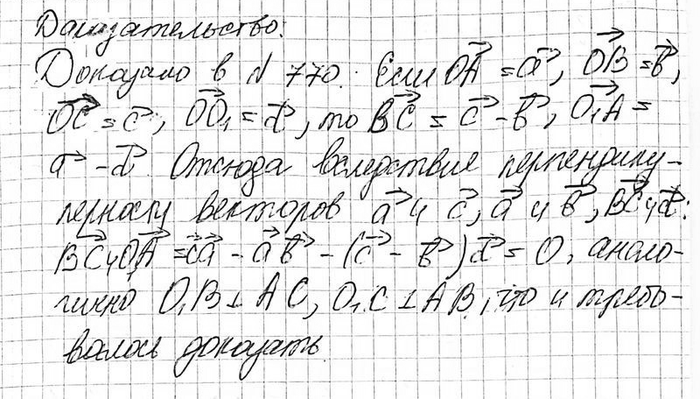 Доказательство:
Доказано в № 770. Если O͞A⃗ = a⃗, OB⃗ = b⃗,
OC⃗ = c⃗, OO₁⃗ = d⃗, то BC⃗ = c⃗ - b⃗, O₁A⃗ =
a⃗ - d⃗. Отсюда вследствие перпендику-
лярности векторов a⃗ и c⃗, a⃗ и b⃗, BC⃗ и d⃗:
BC⃗ и O₁A⃗ = c⃗a⃗ - a⃗b⃗ - (c⃗ - b⃗)d⃗ = 0, анало-
гично O₁B ⊥ AC, O₁C ⊥ AB, что и требо-
валось доказать.